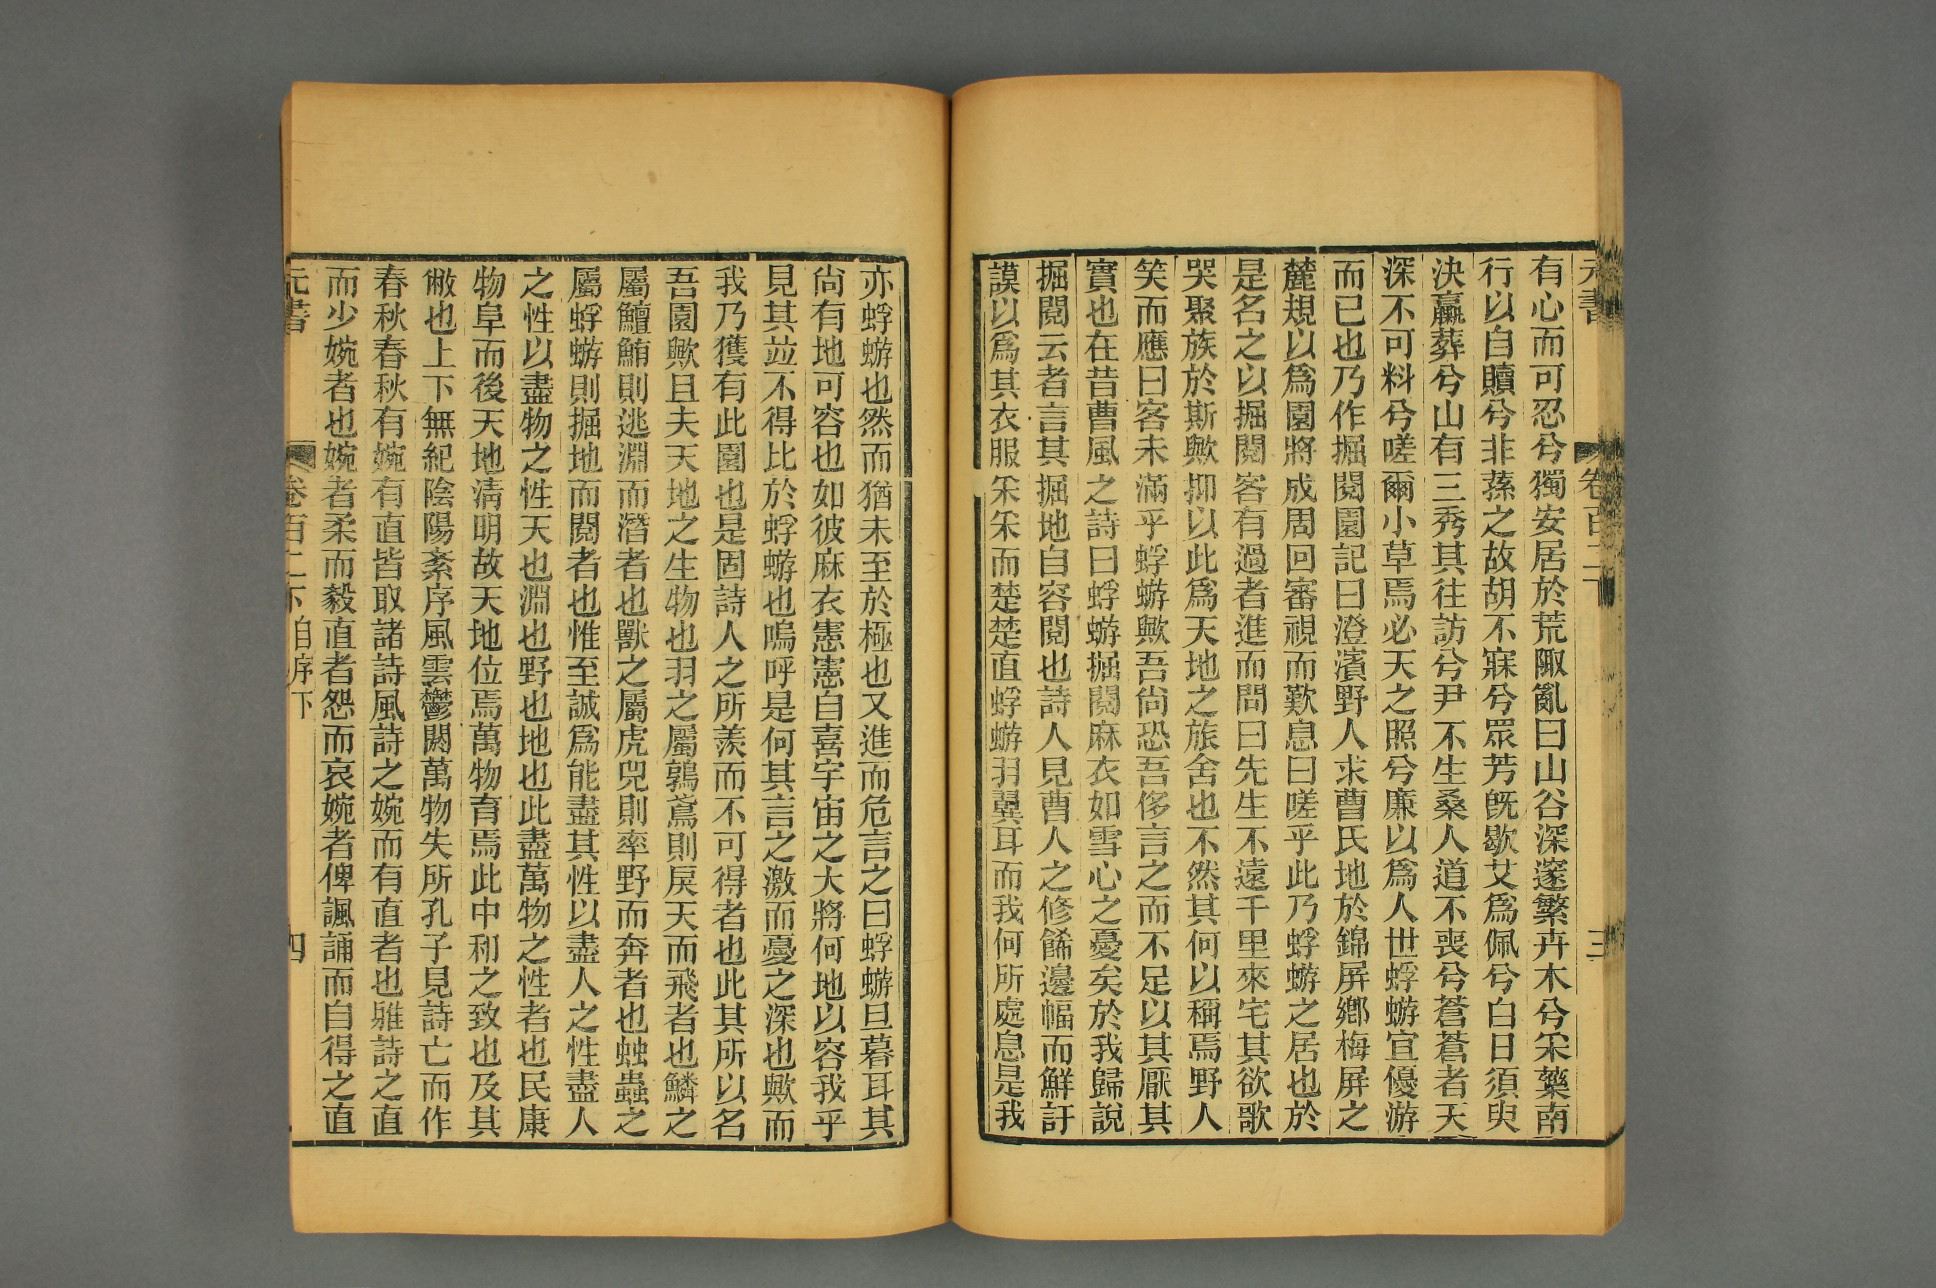 元書
卷百二下
三
有心而可忍兮獨安居於荒陬亂曰山谷深邃繁卉木兮采藥南
行以自贖兮非蓀之故胡不寐兮眾芳旣歇艾爲佩兮白日須臾
決羸葬兮山有三秀其往訪兮尹不生桑人道不喪兮蒼蒼者天
深不可料兮嗟爾小草焉必天之照兮廉以爲人世蜉蝣宜優游
而已也乃作掘閱園記曰澄濱野人求曹氏地於錦屏鄕梅屏之
麓規以爲園將成周回審視而歎息曰嗟乎此乃蜉蝣之居也於
是名之以掘閱客有過者進而問曰先生不遠千里來宅其欲歌
哭聚族於斯歟抑以此爲天地之旅舍也不然其何以稱焉野人
笑而應曰客未滿乎蜉蝣歟吾尙恐吾侈言之而不足以其厭其
實也在昔曹風之詩曰蜉蝣掘閱麻衣如雪心之憂矣於我歸說
掘閱云者言其掘地自容閱也詩人見曹人之修餙邊幅而鮮訏
謨以爲其衣服采采而楚楚直蜉蝣羽翼耳而我何所處息是我
亦蜉蝣也然而猶未至於極也又進而危言之曰蜉蝣旦暮耳其
尙有地可容也如彼麻衣憲憲自喜宇宙之大將何地以容我乎
見其並不得比於蜉蝣也嗚呼是何其言之激而憂之深也歟而
我乃獲有此園也是固詩人之所羨而不可得者也此其所以名
吾園歟且夫天地之生物也羽之屬鶉鳶則戾天而飛者也鱗之
屬鱣鮪則逃淵而潛者也獸之屬虎兕則率野而奔者也蚰蟲之
屬蜉蝣則掘地而閱者也惟至誠爲能盡其性以盡人之性盡人
之性以盡物之性天也淵也野也地也此盡萬物之性者也民康
物阜而後天地淸明故天地位焉萬物育焉此中和之致也及其
敝也上下無紀陰陽紊序風雲鬱閼萬物失所孔子見詩亡而作
春秋春秋有婉有直皆取諸詩風詩之婉而有直者也雖詩之直
而少婉者也婉者柔而毅直者怨而哀婉者俾諷誦而自得之直
元書
卷百二下 自序下
四